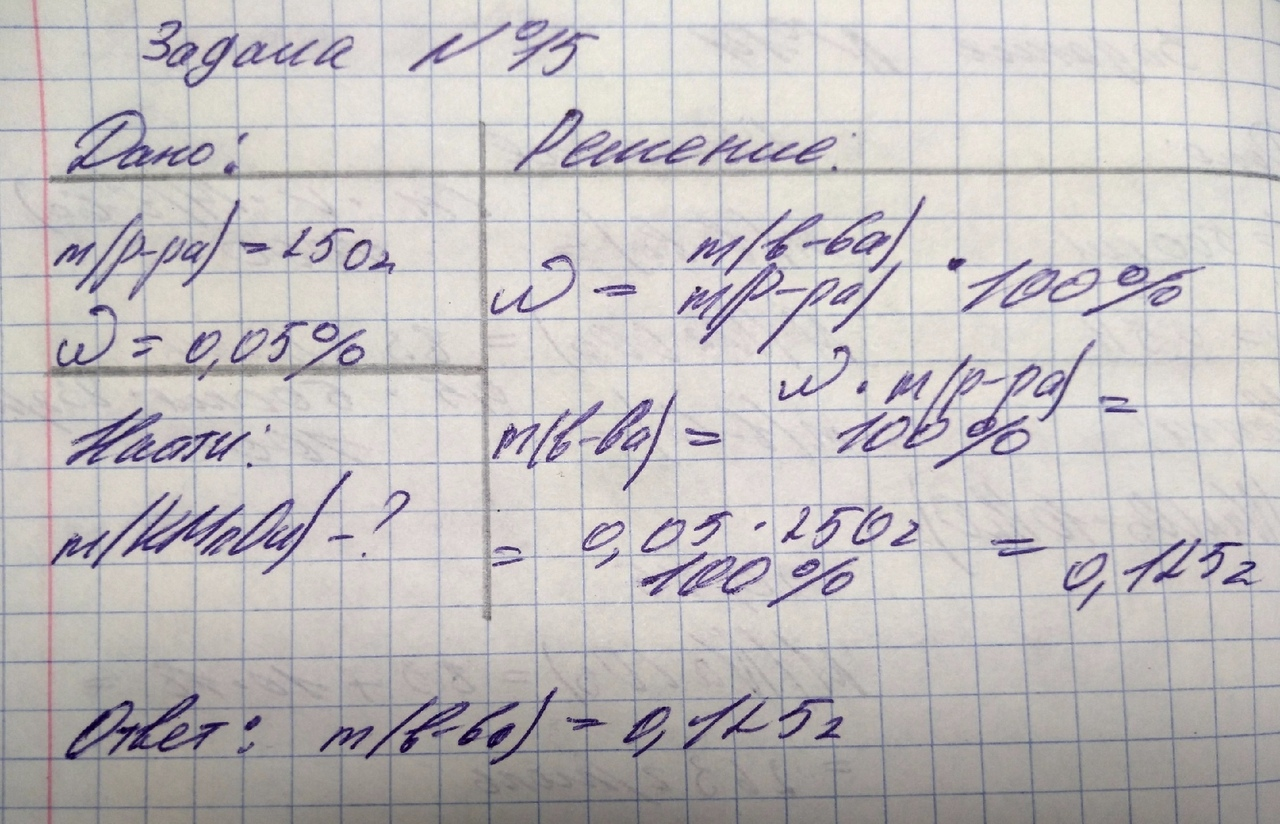 Задача №15
Дано:
m(р-ра) = 250г
ω = 0,05%
Найти:
m(KMnO4) - ?
Решение:
ω = m(в-ва) / m(р-ра) · 100%
m(в-ва) = ω · m(р-ра) / 100% =
= 0,05 · 250г / 100% = 0,125г
Ответ: m(в-ва) = 0,125г